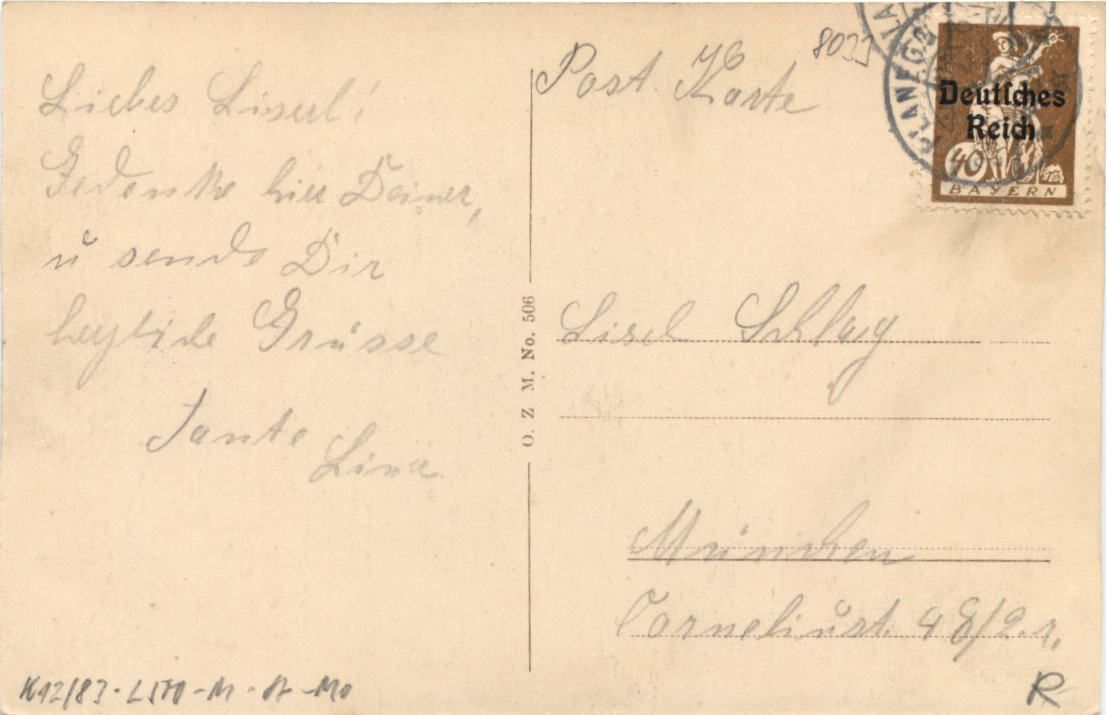 Liebes Liserl!
Gedenke hier Deiner,
u sende Dir
herzliche Grüsse
Tante
Lina
O. Z. M. No. 506
Post Karte
PLANEGG
Deutsches
Reich
40
BAYERN
Lisel Schlag
München
Corneliusst. 48/2. r.
R